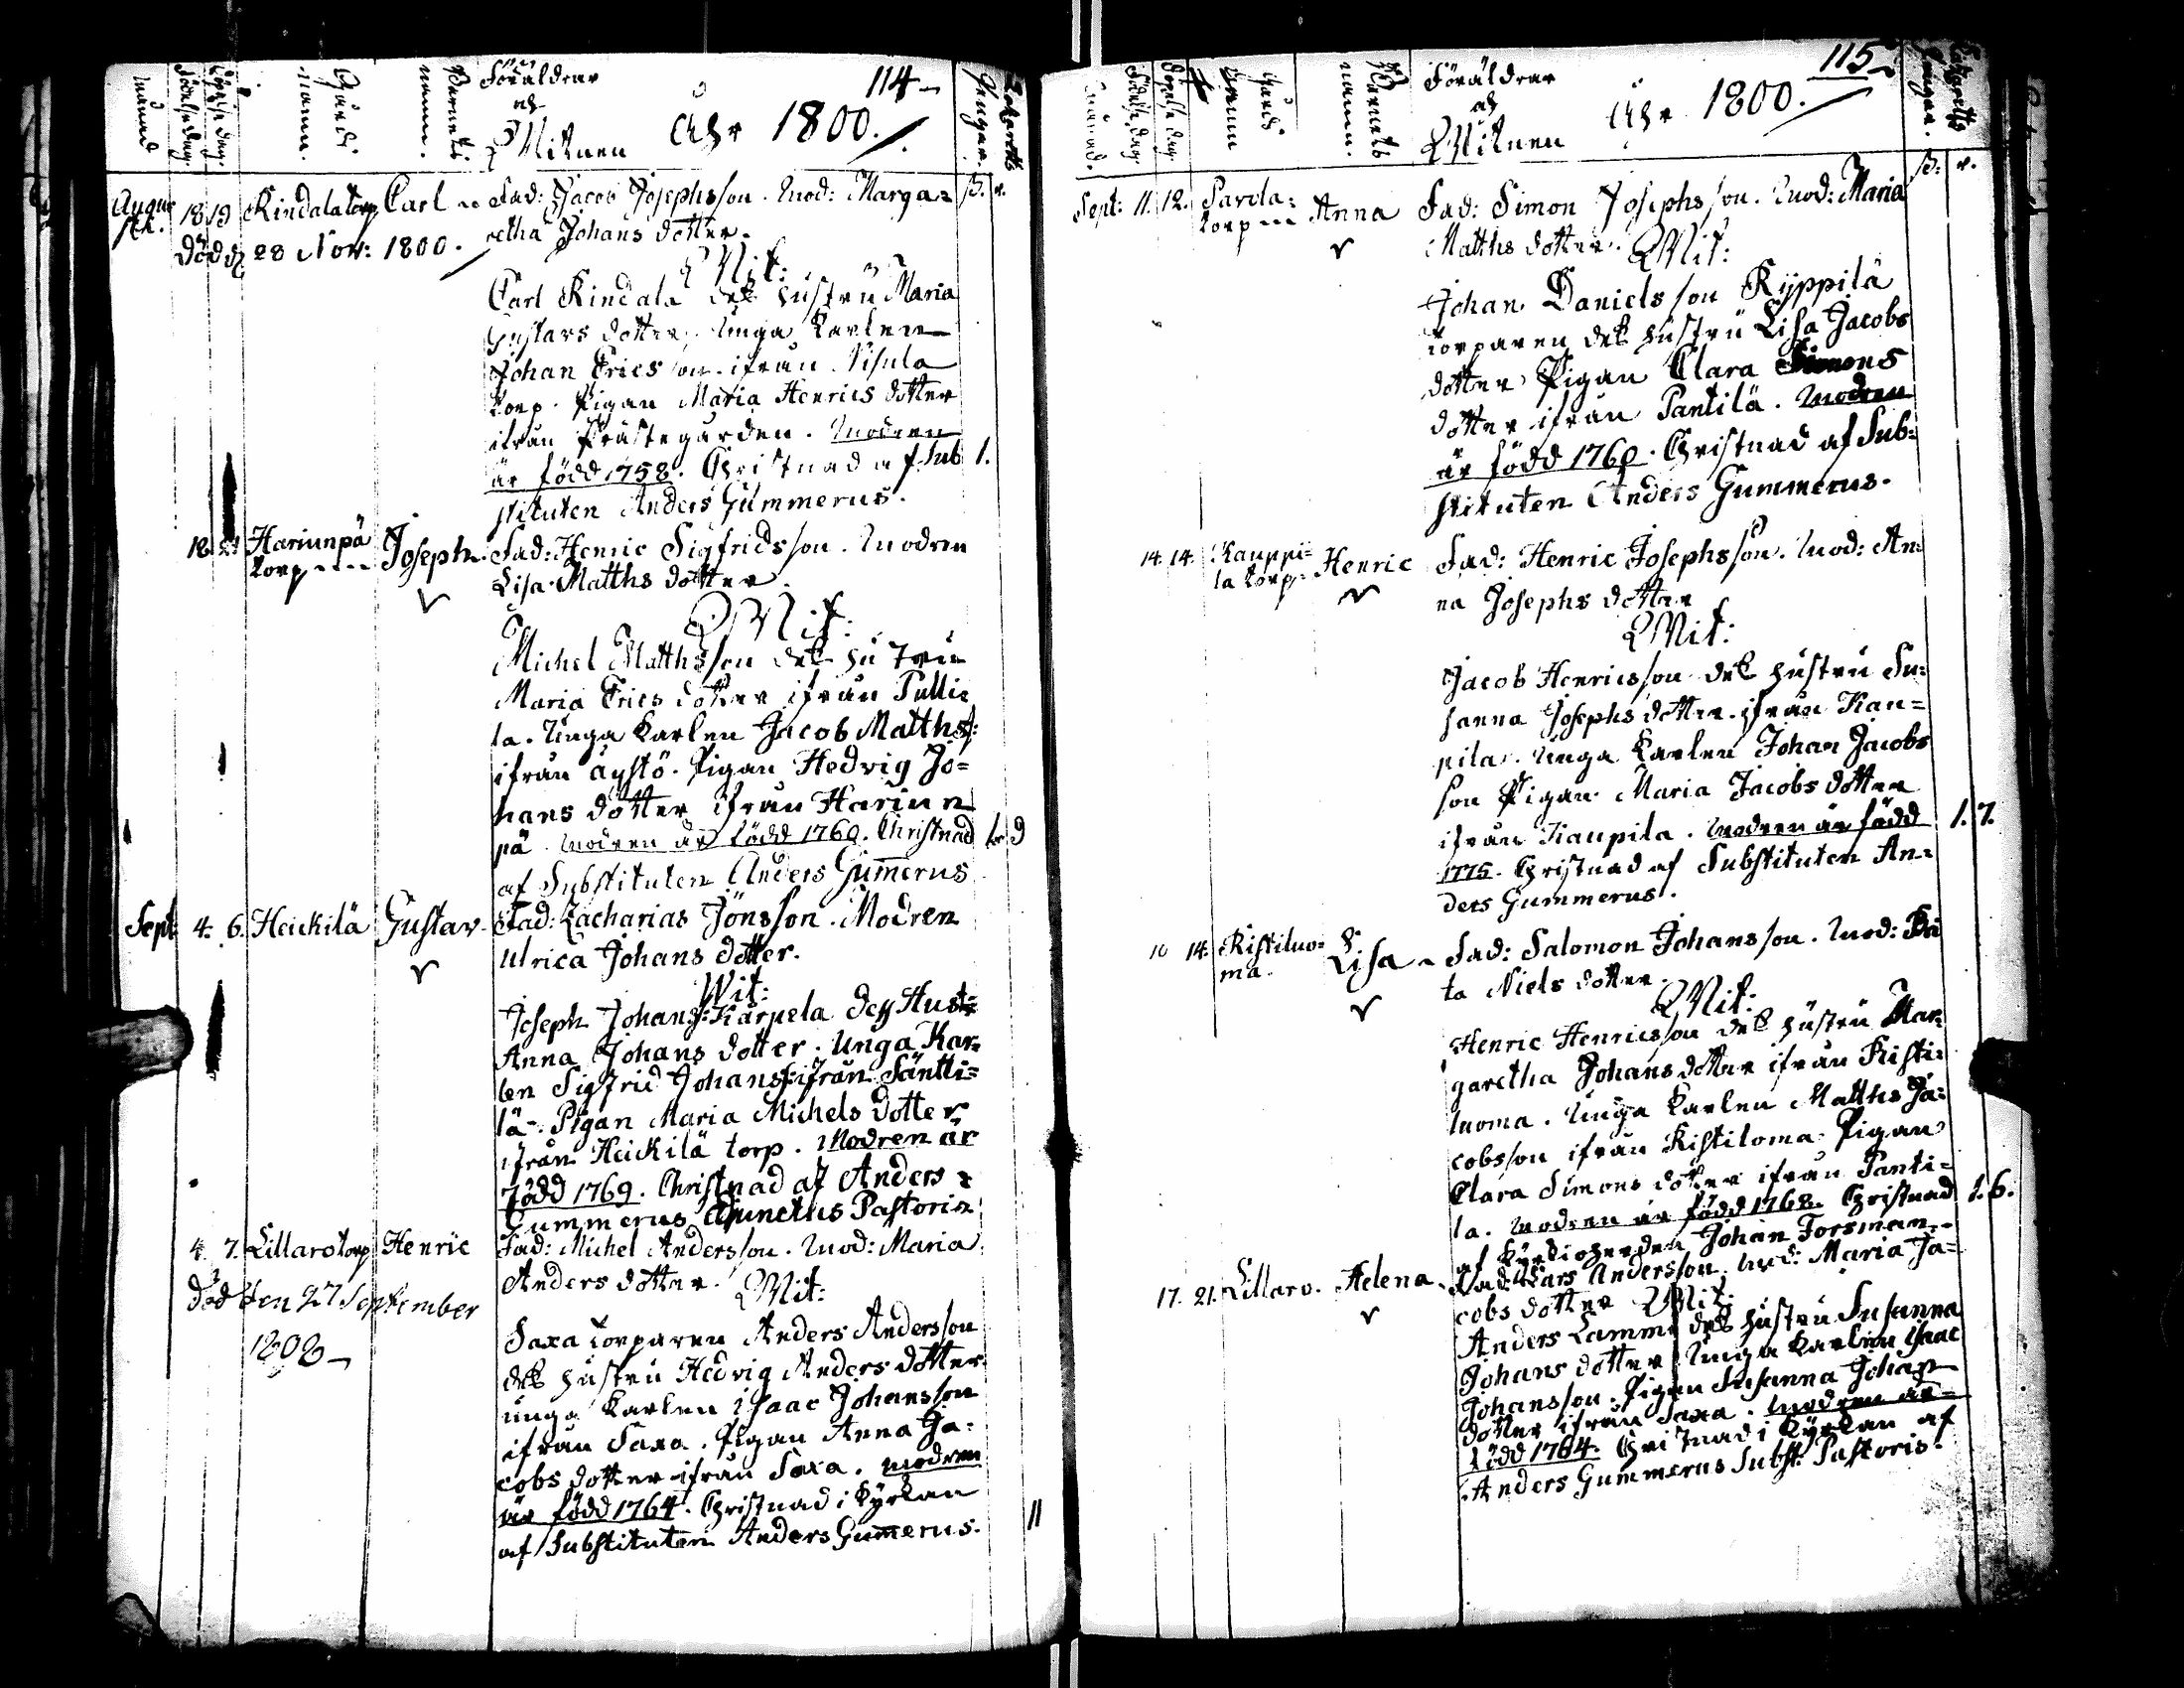 114
Månad
Födelse dag.
Döpelse dag.
Gårds namn.
Barnets namn.
Föräldrar
och
Witnen Åhr 1800.
Augusti. 18 19 Rindala torp Carl Fad: Jacob Josephsson. Mod: Marga=
retha Johans dotter.
död d. 28 Nov: 1800.
Wit:
Carl Rindala dess hustru Maria
Gustavs dotter. Unga Karlen
Johan Ericsson ifrån Nisula
torp. Pigan Maria Henrics dotter
ifrån Prästegården. Modren
är född 1758. Christnad af Sub 1.
stituten Anders Gummerus.
18. 21 Hariunpä Joseph. Fad: Henric Sigfridsson. Modren
torp Lisa Matths dotter.
Wit:
Michel Matthsson dess hustru
Maria Erics dotter ifrån Pulli=
la. Unga Karlen Jacob Matths:
ifrån äystö. Pigan Hedvig Jo=
hans dotter ifrån Hariun
pä. Modren är född 1760. Christnad
af Substituten Anders Gummerus
Sept: 4. 6. Heickilä Gustav. Fad: Zacharias Jönsson. Modren
Ulrica Johans dotter.
Wit:
Joseph Johans: Karpela dess Hust:
Anna Johans dotter. Unga Kar=
len Sigfrid Johans: ifrån Säntti=
lä. Pigan Maria Michels dotter
ifrån Heickilä torp. Modren är
född 1769. Christnad af Anders
Gummerus Adjunctus Pastoris
4. 7. Lillaro torp Henric Fad: Michel Andersson. Mod: Maria
Anders dotter. Wit:
död den 27 September
1808
Saxa torparen Anders Andersson
dess hustru Hedvig Anders dotter
unga Karlen Isaac Johansson
ifrån Saxa. Pigan Anna Ja=
cobs dotter ifrån Saxa. Modren
är född 1764. Christnad i Kyrkan
af Substituten Anders Gummerus.
115
Månad.
Födelse dag.
Döpelse dag.
Gårds namn
Barnets namn.
Föräldrar
och
Witnen Åhr 1800.
Sept: 11. 12. Parola= Anna Fad: Simon Josephsson. Mod: Maria
torp Matths dotter. Wit:
Johan Danielsson Kyppilä
torparen dess hustru Lisa Jacobs
dotter Pigan Clara Simons
dotter ifrån Pantilä. Modren
är född 1760. Christnad af Sub=
stituten Anders Gummerus.
14. 14. Kauppi= Henric Fad: Henric Josephsson. Mod: An=
la torp na Josephs dotter
Wit:
Jacob Henricsson dess hustru Su=
sanna Josephs dotter ifrån Kau=
pila. Unga Karlen Johan Jacobs
son Pigan Maria Jacobs dotter
ifrån Kaupila. Modren är född 1. 7.
1775. Christnad af Substituten An=
ders Gummerus.
10 14. Ristiluo= Lisa Fad: Salomon Johansson. Mod: Bri
ma. ta Niels dotter.
Wit:
Henric Henricsson dess hustru Mar=
garetha Johans dotter ifrån Risti=
luoma. Unga Karlen Matths Ja=
cobsson ifrån Ristiloma. Pigan
Clara Simons dotter ifrån Panti=
la. Modren är född 1768. Christnad 1. 6.
af Kyrkioherden Johan Forsman
17. 21. Lillaro. Helena Fad: Lars Andersson, Mod: Maria Ja=
cobs dotter Wit:
Anders Lammi dess hustru Susanna
Johans dotter. Unga Karlen Isaac
Johansson. Pigan Susanna Johans
dotter ifrån Saxa. Modren är
född 1764. Christnad i Kyrkan af
Anders Gummerus Subst: Pastoris.